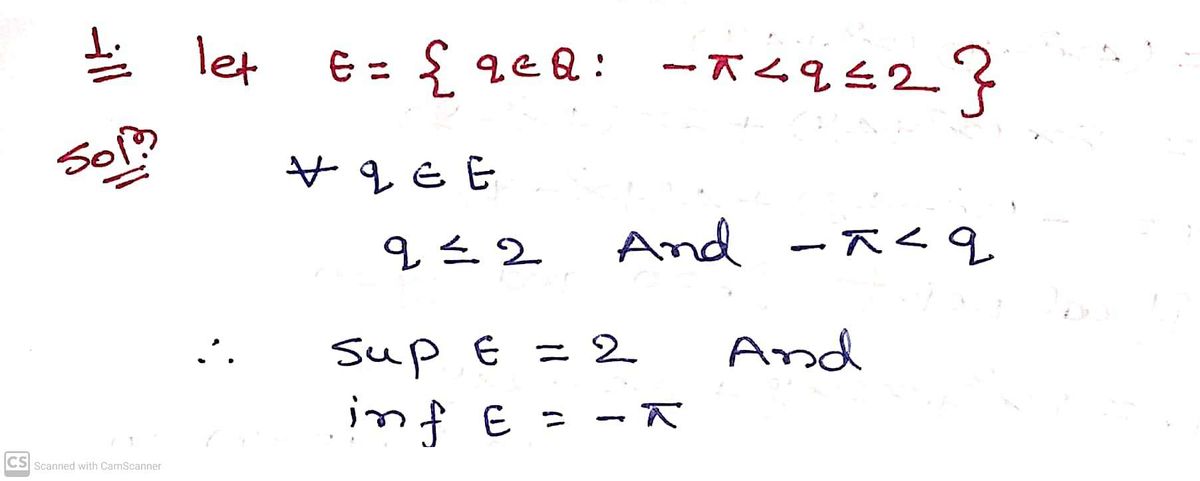 1. let E = { q ∈ Q : -π < q ≤ 2 }
Solⁿ:
∀ q ∈ E
q ≤ 2 And -π < q
∴ sup E = 2 And
inf E = -π
CS Scanned with CamScanner